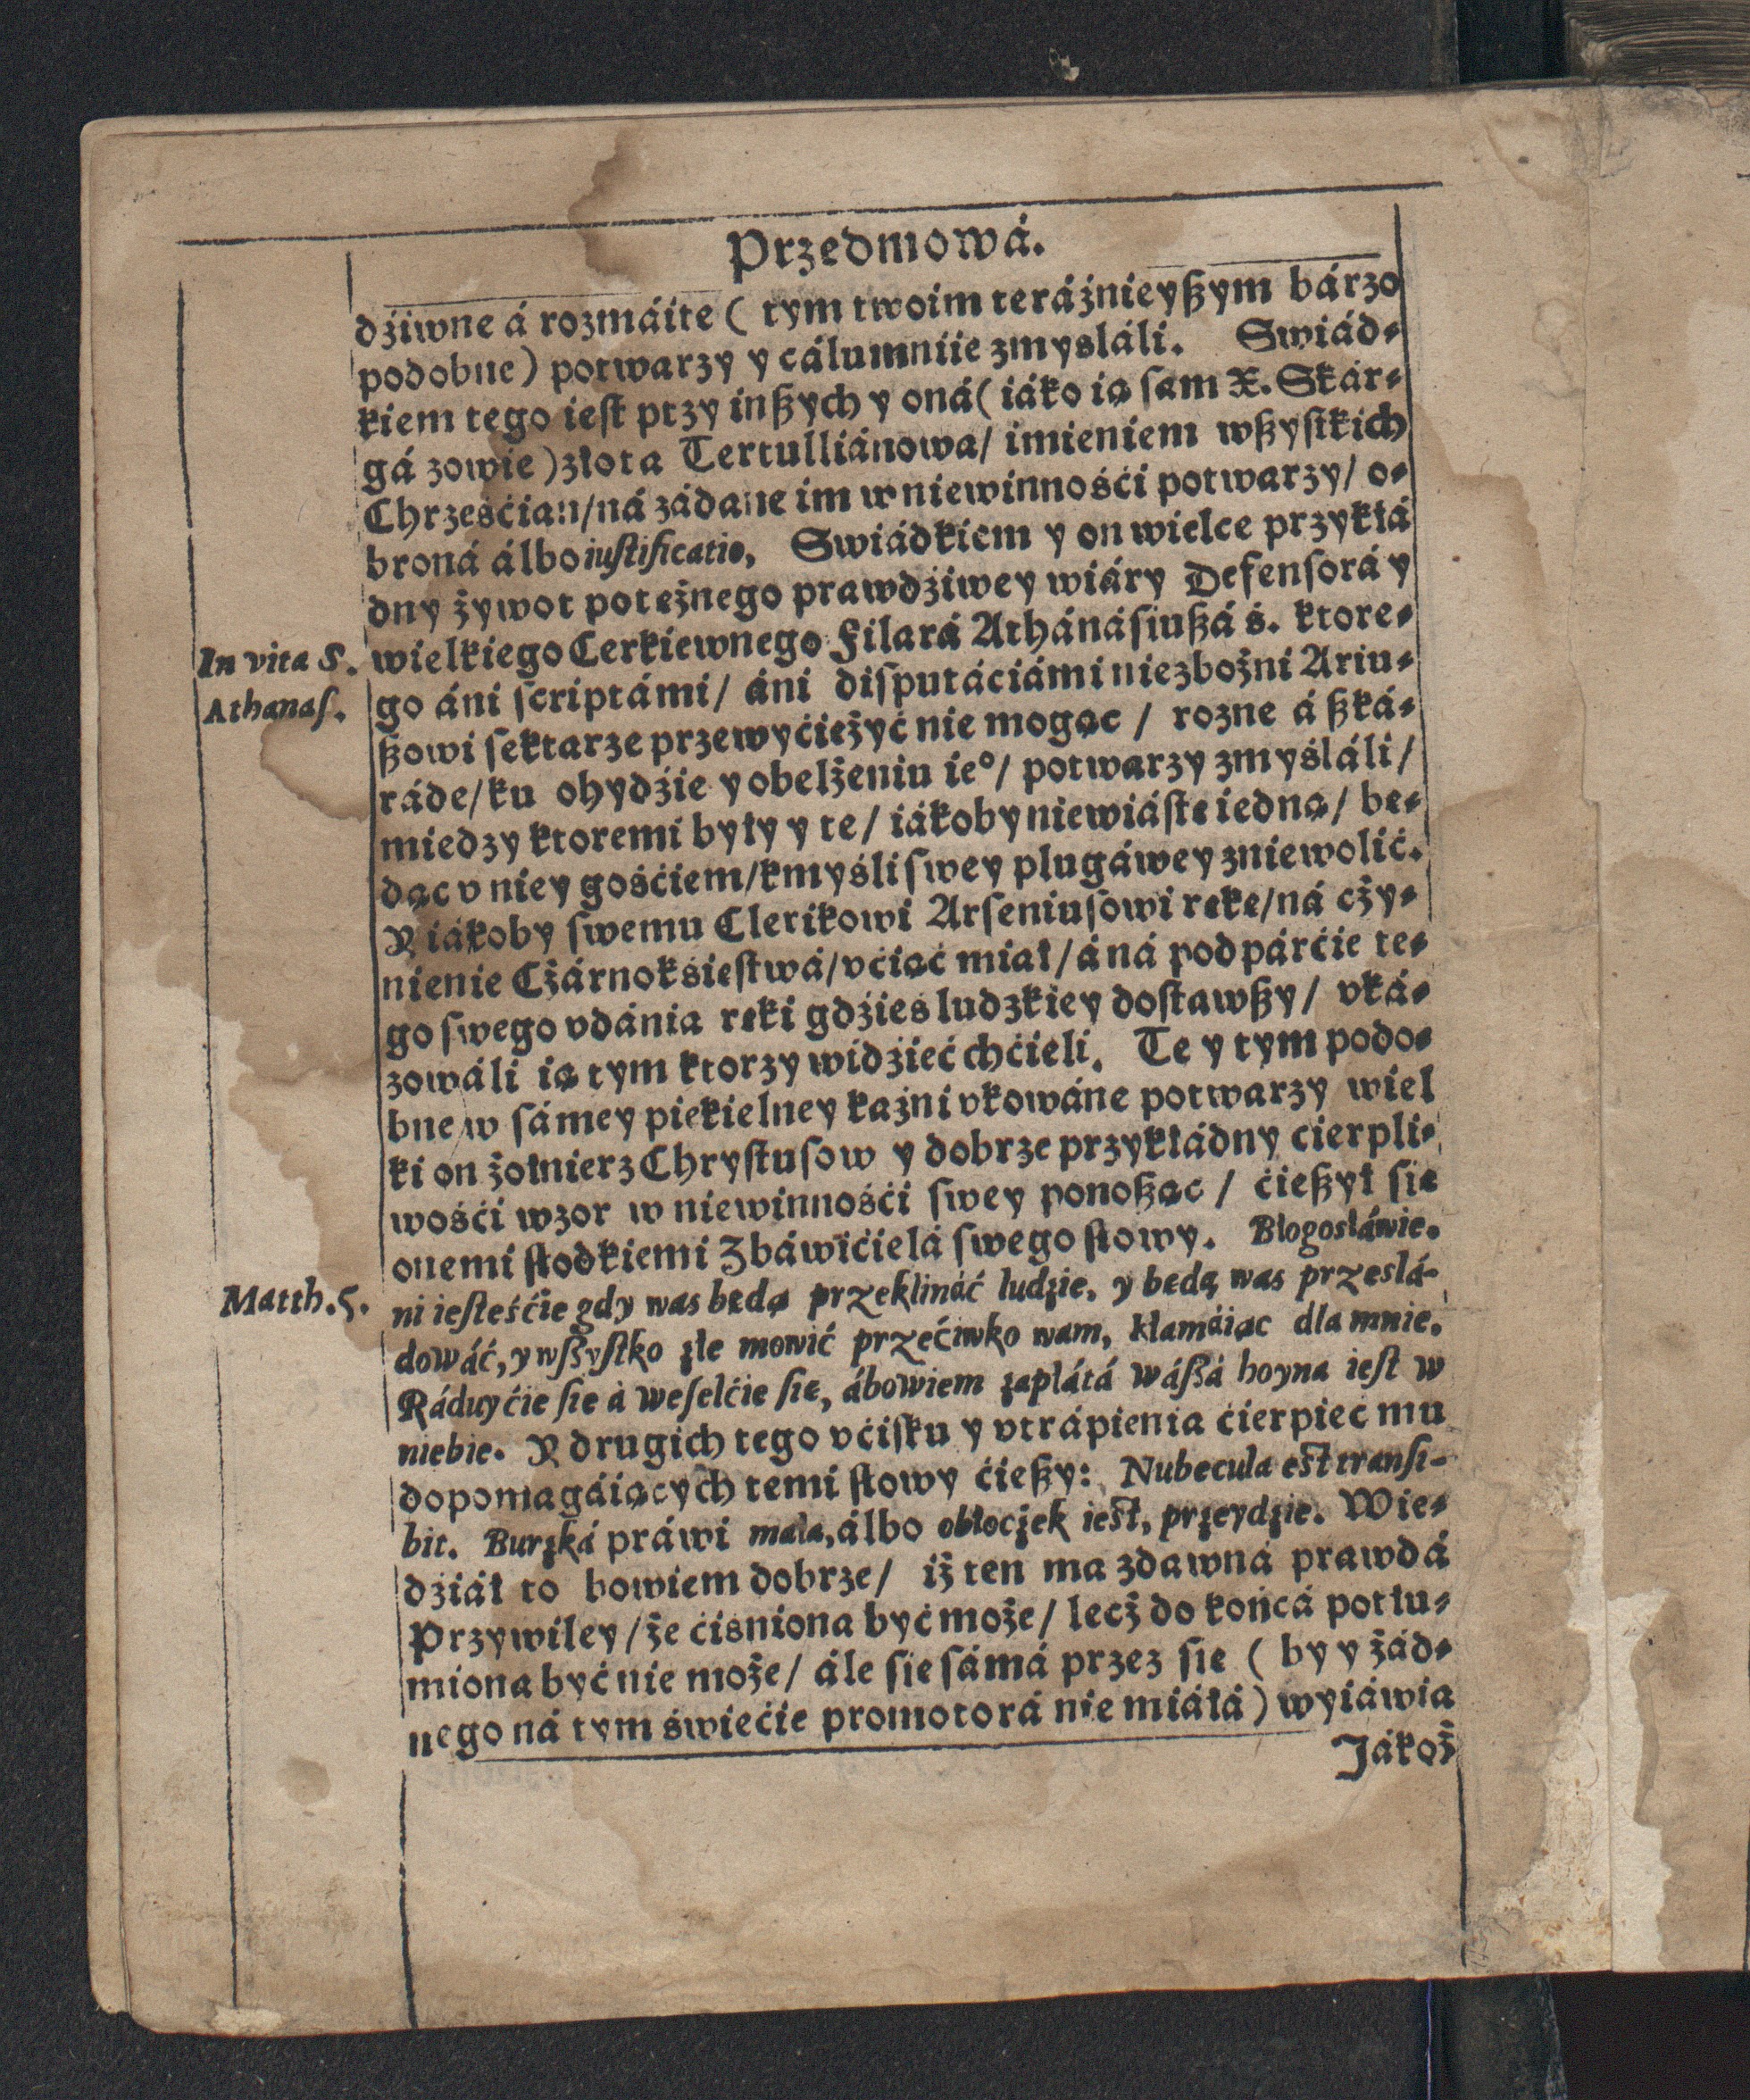 Przedmowá.
dźiwne á rozmáite ( tym twoim teráźnieyßym bárzo
podobne) potwarzy y cálumniie zmysláli. Swiád-
kiem tego ieſt przy inßych y oná ( iáko ią ſam X. Skár-
gá zowie) złota Tertulliánowa/ imieniem wßyſtkich
Chrześćian/ ná zádane im w niewinnośći potwarzy/ o-
broná álbo iuſtificatio, Swiádkiem y on wielce przykłá
dny żywot potężnego prawdźiwey wiáry Defenſorá y
In vita S.
Athanaſ.
wielkiego Cerkiewnego Filará Athánáſiußá ś. ktore-
go áni ſcriptámi/ áni diſputáciámi niezbożni Ariu-
ßowi ſektarze przewyćiężyć nie mogąc / rozne á ßká-
ráde/ ku ohydźie y obelżeniu ie°/ potwarzy zmyśláli/
miedzy ktoremi były y te/ iákoby niewiáſtę iedną/ bę-
dąc v niey gośćiem/ kmyśli ſwey plugáwey zniewolić.
Y iákoby ſwemu Clerikowi Arſeniuſowi rękę/ ná cży-
nienie Cżárnokśięſtwá/ vćiąć miał/ á ná podpárćie te-
go ſwego vdánia ręki gdźieś ludzkiey doſtawßy/ vká-
zowáli ią tym ktorzy widźieć chćieli. Te y tym podo-
bne w ſámey piekielney kaźni vkowáne potwarzy wiel
ki on żołnierz Chryſtuſow y dobrze przykłádny cierpli-
wośći wzor w niewinnośći ſwey ponoßąc / ćießył ſię
onemi ſłodkiemi Zbáwićielá ſwego ſłowy. Błogosłáwie.
Matth. 5.
ni ieſteśćie gdy was będą przeklináć ludźie, y będą was prześlá-
dowáć, y wſzyſtko źle mowić przećiwko wam, kłamáiąc dla mnie.
Ráduyćie ſię á weſelćie ſię, ábowiem zapłátá wáſzá hoyna ieſt w
niebie. Y drugich tego vćiſku y vtrápienia ćierpieć mu
dopomagáiących temi ſłowy ćießy: Nubecula eſt tranſi-
bit. Burzká práwi mała, álbo obłoczek ieſt, przeydzie. Wie-
dźiáł to bowiem dobrze/ iż ten ma zdawná prawdá
Przywiley/ że ćiśniona być może/ lecż do końcá potłu-
miona być nie może/ ále ſię ſámá przez ſię ( by y żád-
nego ná tym świećie promotorá nie miáłá) wyiáwia
Jákoż